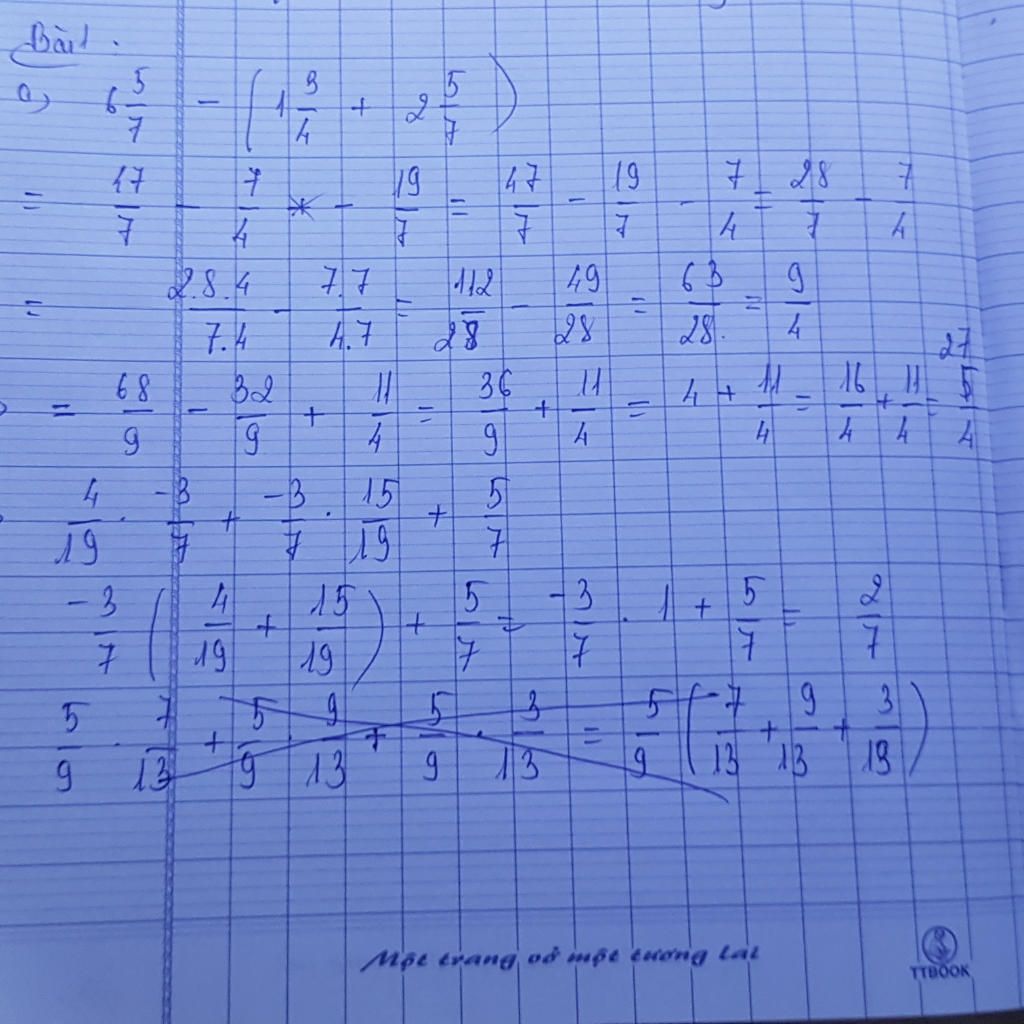 Bài 1.
a) 6 5/7 - ( 1 3/4 + 2 5/7 )
= 47/7 - 7/4 - 19/7 = 47/7 - 19/7 - 7/4 = 28/7 - 7/4
= 28.4/7.4 - 7.7/4.7 = 112/28 - 49/28 = 63/28 = 9/4
= 68/9 - 32/9 + 11/4 = 36/9 + 11/4 = 4 + 11/4 = 16/4 + 11/4 = 27/4
4/19 . -3/7 + -3/7 . 15/19 + 5/7
-3/7 ( 4/19 + 15/19 ) + 5/7 = -3/7 . 1 + 5/7 = 2/7
5/9 . 7/13 + 5/9 . 9/13 + 5/9 . 3/13 = 5/9 ( -7/13 + 9/13 + 3/13 )
Một trang vở một tương lai
TTBOOK